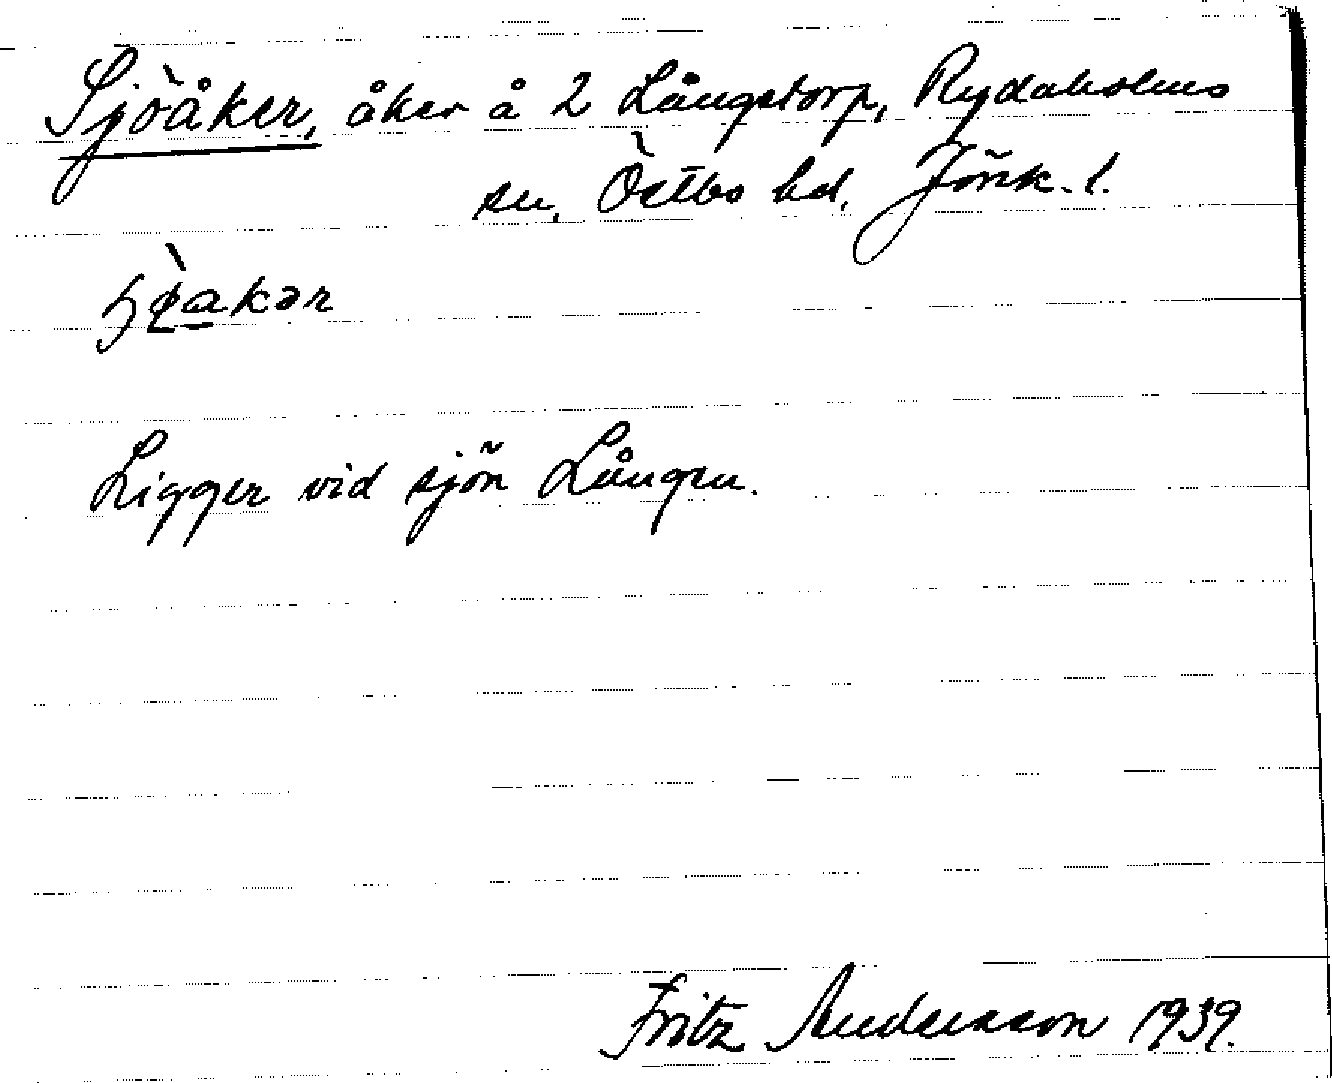 Sjöåker, åker å 2 Långstorp, Rydaholms
sn, Östbo hd. Jönk. l.
Ligger vid sjön Lången.
Fritz Andersson 1939.